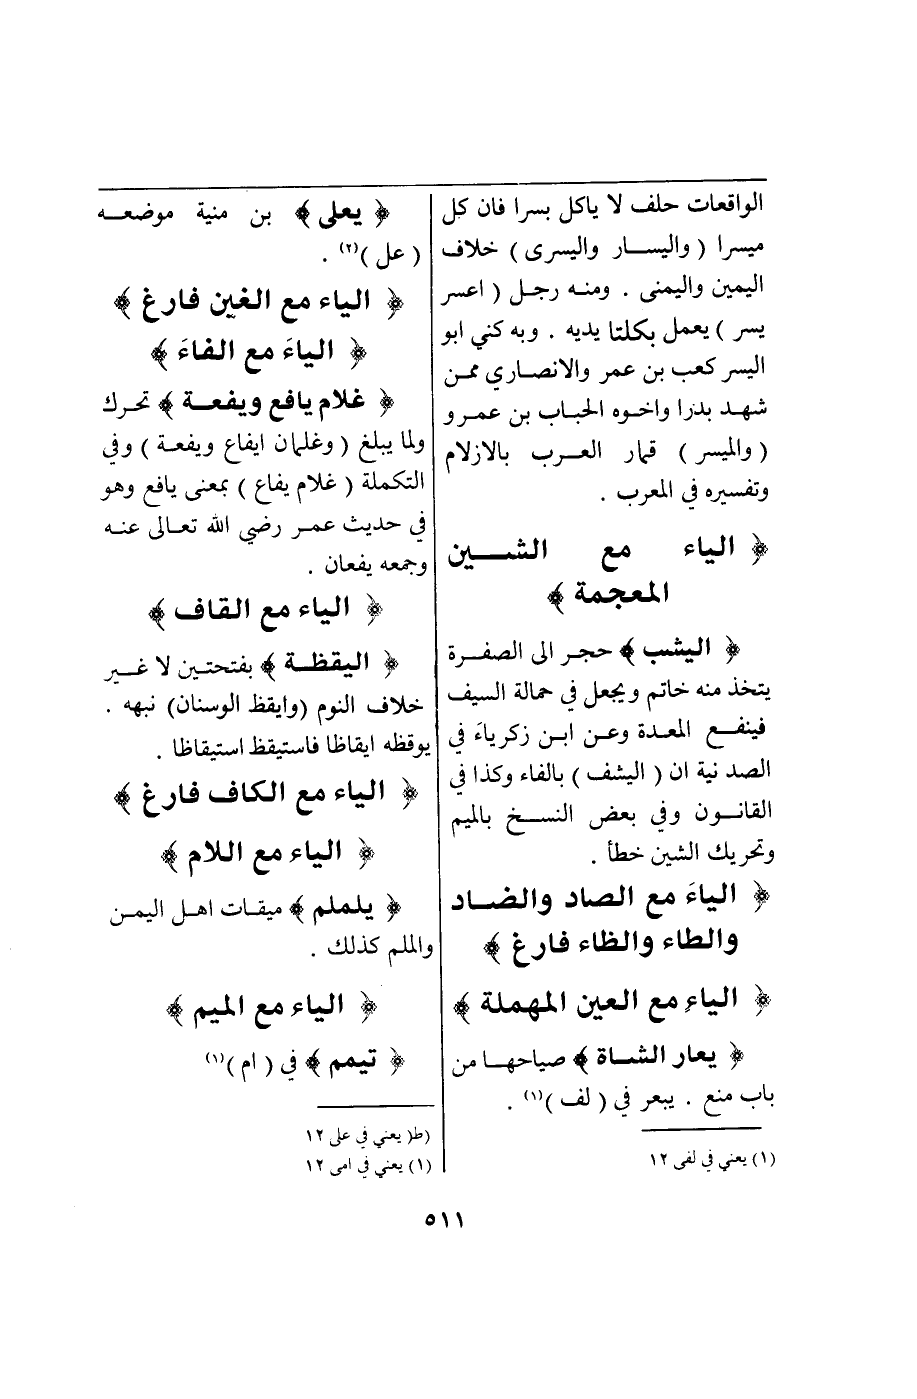 الواقعات حلف لا ياكل بسرا فان كل
ميسرا ( واليسار واليسرى ) خلاف
اليمين واليمنى . ومنه رجل ( اعسر
يسر ) يعمل بكلتا يديه . وبه كني ابو
اليسر كعب بن عمر والانصاري ممن
شهد بدرا واخوه الحباب بن عمرو
( والميسر ) قمار العرب بالازلام
وتفسيره في المعرب .
﴿ الياء مع الشين
المعجمة ﴾
﴿ اليشب ﴾ حجر الى الصفرة
يتخذ منه خاتم ويجعل في حمالة السيف
فينفع المعدة وعن ابن زكرياء في
الصد نية ان ( اليشف ) بالفاء وكذا في
القانون وفي بعض النسخ بالميم
وتحريك الشين خطأ .
﴿ الياء مع الصاد والضاد
والطاء والظاء فارغ ﴾
﴿ الياء مع العين المهملة ﴾
﴿ يعار الشاة ﴾ صياحها من
باب منع . يبعر في ( لف )(١) .
(١) يعني في لفى ١٢
﴿ يعلى ﴾ بن منية موضعه
( عل )(٢) .
﴿ الياء مع الغين فارغ ﴾
﴿ الياء مع الفاء ﴾
﴿ غلام يافع ويفعة ﴾ تحرك
ولما يبلغ ( وغلمان ايفاع ويفعة ) وفي
التكملة ( غلام يفاع ) بمعنى يافع وهو
في حديث عمر رضي الله تعالى عنه
وجمعه يفعان .
﴿ الياء مع القاف ﴾
﴿ اليقظة ﴾ بفتحتين لا غير
خلاف النوم (وايقظ الوسنان) نبهه .
يوقظه ايقاظا فاستيقظ استيقاظا .
﴿ الياء مع الكاف فارغ ﴾
﴿ الياء مع اللام ﴾
﴿ يلملم ﴾ ميقات اهل اليمن
والملم كذلك .
﴿ الياء مع الميم ﴾
﴿ تيمم ﴾ في ( ام )(١)
(ط( يعني في على ١٢
(١) يعني في امى ١٢
٥١١